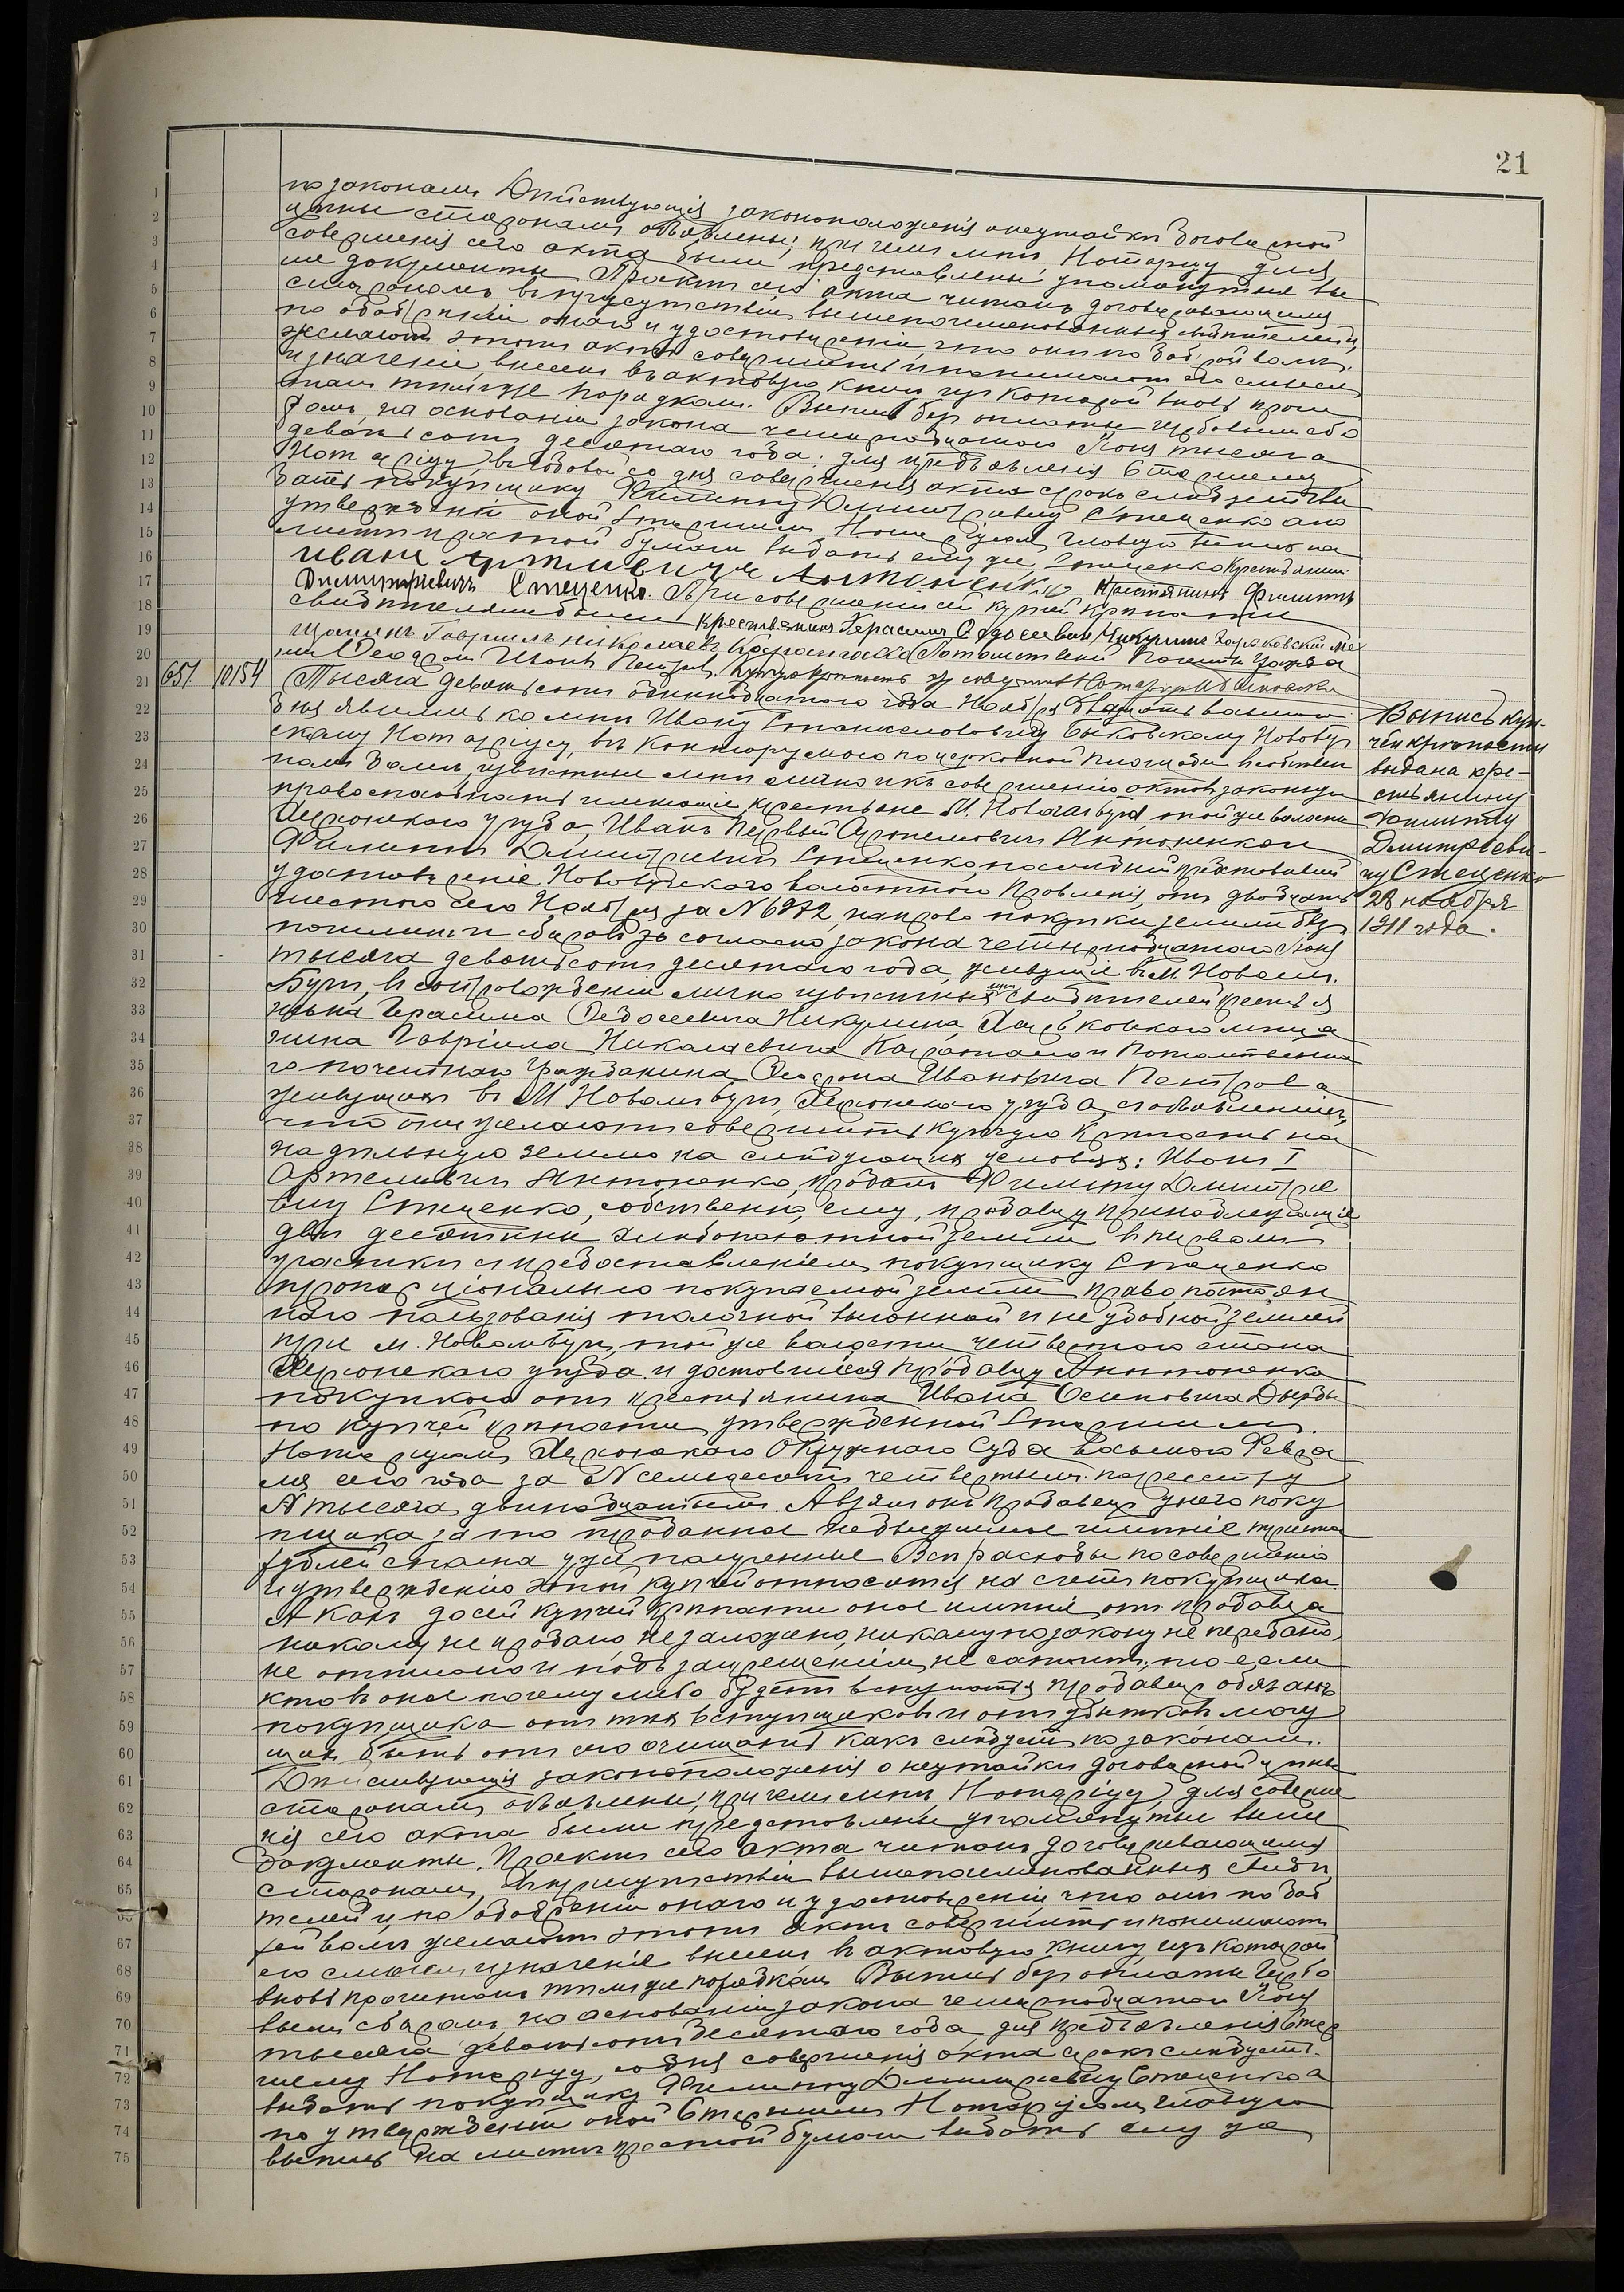 21
по законам. Дѣйствующія законоположенія о неутайкѣ договорной
цѣны сторонамъ объявлены; при чемъ мнѣ, Нотаріусу для
совершенія сего акта были представлены упомянутые вы
ше документы. Проектъ сего акта читанъ договаривающимся
сторонамъ въ присутствіи вышепоименованныхъ свидѣтелей,
по одобреніи онаго и удостовѣреніи, что они по доброй волѣ
желаютъ этотъ актъ совершить и понимаютъ его смыслъ
и значеніе, внесенъ въ актовую книгу, изъ которой вновь прочи
танъ тѣмъ же порядкомъ. Выпись безъ оплаты гербовымъ сбо
ромъ, на основаніи закона четырнадцатаго Іюня тысяча
девятьсотъ десятаго года, для предъявленія Старшему
Нотаріусу, въ годовой со дня совершенія акта срокъ слѣдуетъ вы
дать покупщику Филиппу Дмитріевичу Стеценко а по
утвержденіи оной Старшимъ Нотаріусомъ, главную выпись на
листѣ простой бумаги выдать ему же Стеценко Крестьянинъ
Иванъ Артемьевичъ Антоненко, Крестьянинъ Филиппъ
Димитріевичъ Стеценко. При совершеніи сей купчей крѣпости
свидѣтелями были: крестьянинъ Герасимъ Ѳедосеевъ Никулинъ Харьковскій Мѣ
щанинъ Гавріилъ Николаевъ Потомственный Почетный Гражда
нинъ Ѳеодоръ Ивановъ Петровъ. Купчую крѣпость эту совершилъ Нотаріусъ И Быковскій
651 10154 Тысяча девятьсотъ одиннадцатаго года Ноября двадцать восьмого
дня явились ко мнѣ Ивану Станиславовичу Быковскому Новобуг
скому Нотаріусу, въ контору мою по церковной площади въ собствен
номъ домѣ, извѣстные мнѣ лично и къ совершенію актовъ законную
правоспособность имѣющіе крестьяне М. Новаго Буга, той же волости
Херсонскаго уѣзда, Иванъ Первый Артемовичъ Антоненко и
Филиппъ Дмитріевичъ Стеценко, послѣдній представившій
удостовѣреніе Новобугскаго волостнаго Правленія, отъ двадцать
шестого сего Ноября за № 6972, на право покупки земли безъ
пошлинъ и сборовъ согласно закона четырнадцатаго Іюня
тысяча девятьсотъ десятаго года, живущіе въ М. Новомъ
Бугѣ, въ сопровожденіи лично извѣстныхъ мнѣ свидѣтелей крестья
нина Герасима Ѳедосеевича Никулина, Харьковскаго мѣща
нина Гавріила Николаевича и Потомственна
го почетнаго гражданина Ѳеодора Ивановича Петрова
живущихъ въ М Новомъ Бугѣ, Херсонскаго уѣзда, съ объявленіемъ,
что они желаютъ совершить купчую крѣпость на
надѣльную землю на слѣдующихъ условіяхъ: Иванъ I
Артемовичъ Антоненко, продалъ Филиппу Дмитріе
вичу Стеценко, собственно, ему, продавцу принадлежащіе
двѣ десятины хлѣбопахотной земли въ первомъ
участкѣ съ предоставленіемъ покупщику Стеценко
пропорціонально покупаемой земли право постоян
наго пользованія толочной выгонной и неудобной землей
при м. Новомъ Бугѣ, той же волости четвертаго стана
Херсонскаго уѣзда и доставшіеся продавцу Антоненко
покупкою отъ крестьянина Ивана Осиповича Дырды
по купчей крѣпости утвержденной Старшимъ
Нотаріусомъ Херсонскаго Окружнаго Суда восьмого Февра
ля сего года за № семьдесятъ четвертымъ по реестру
№ тысяча двѣнадцатымъ. А взялъ онъ продавецъ у него поку
пщика за то проданное недвижимое имѣніе триста
рублей сполна уже полученные. Всѣ расходы по совершенію
и утвержденію этой купчей относятся на счетъ покупщика.
А какъ до сей купчей крѣпости оное имѣніе отъ продавца
никому не продано, не заложено, никому по закону не передано,
не отписано и подъ запрещеніемъ не состоитъ, то если
кто въ оное почему либо будетъ вступаться продавецъ обязанъ
покупщика отъ тѣхъ вступщиковъ и отъ убытковъ могу
щихъ быть отъ сего очищать какъ слѣдуетъ по законамъ.
Дѣйствующія законоположенія о неутайкѣ договорной цѣны
сторонамъ объявлены; при чемъ мнѣ Нотаріусу, для соверше
нія сего акта были представлены упомянутые выше
документы. Проектъ сего акта читанъ договаривающимся
сторонамъ, въ присутствіи вышепоименованныхъ свидѣ
телей и по одобреніи онаго и удостовѣреніи, что они по доб
рой волѣ желаютъ этотъ актъ совершить и понимаютъ
его смыслъ и значеніе внесенъ въ актовую книгу, изъ которой
вновь прочитанъ тѣмъ же порядкомъ. Выпись безъ оплаты гербо
вымъ сборомъ, на основаніи закона четырнадцатаго Іюня
тысяча девятьсотъ десятаго года для предъявленія Стар
шему Нотаріусу, со дня совершенія акта срокъ слѣдуетъ
выдать покупщику Филиппу Дмитріевичу Стеценко а
по утвержденіи оной Старшимъ Нотаріусомъ, главную
выпись на листѣ простой бумаги выдать ему же
Выпись куп-
чей крѣпости
выдана кре-
стьянину
Филиппу
Дмитріеви-
чу Стеценко
28 ноября
1911 года.